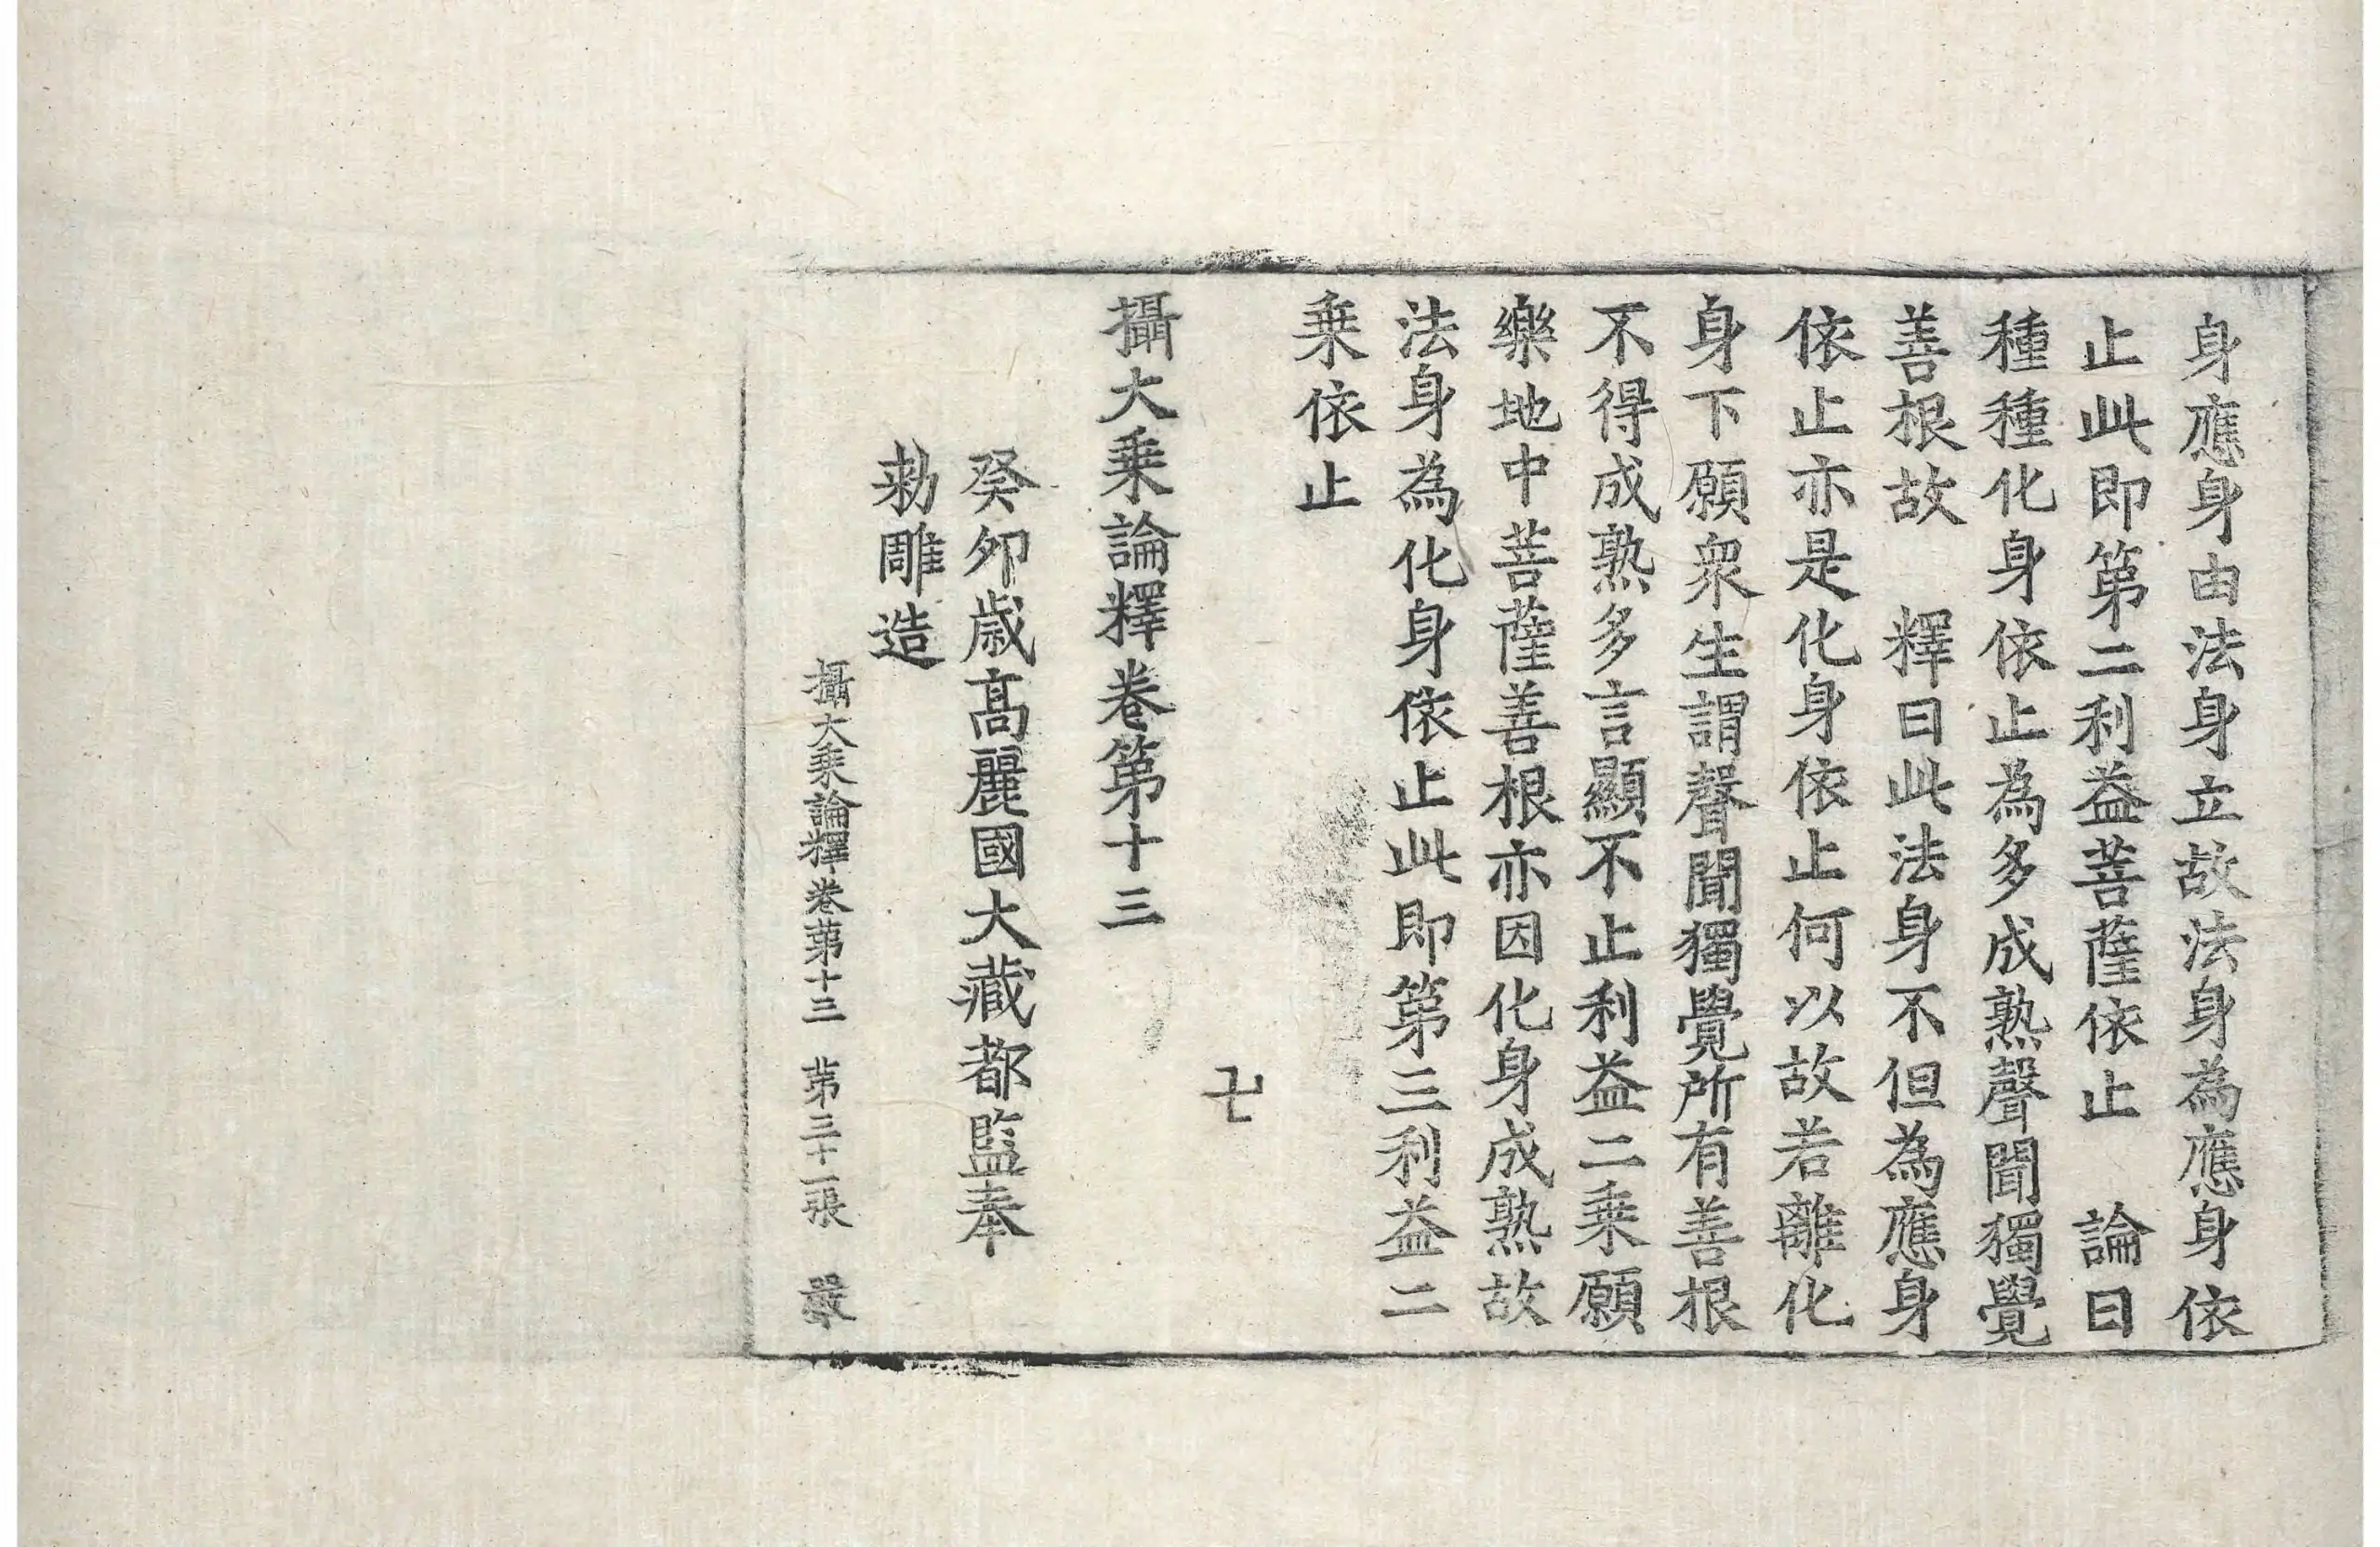 身應身由法身立故法身為應身依
止此即第二利益菩薩依止　論曰
種種化身依止為多成熟聲聞獨覺
善根故　釋曰此法身不但為應身
依止亦是化身依止何以故若離化
身下願衆生謂聲聞獨覺所有善根
不得成熟多言顯不止利益二乗願
樂地中菩薩善根亦因化身成熟故
法身為化身依止此即第三利益二
乗依止
卍
攝大乗論釋卷第十三
癸卯歲髙麗國大藏都監奉
勑雕造
攝大乗論釋卷第十三　第三十一張　嚴